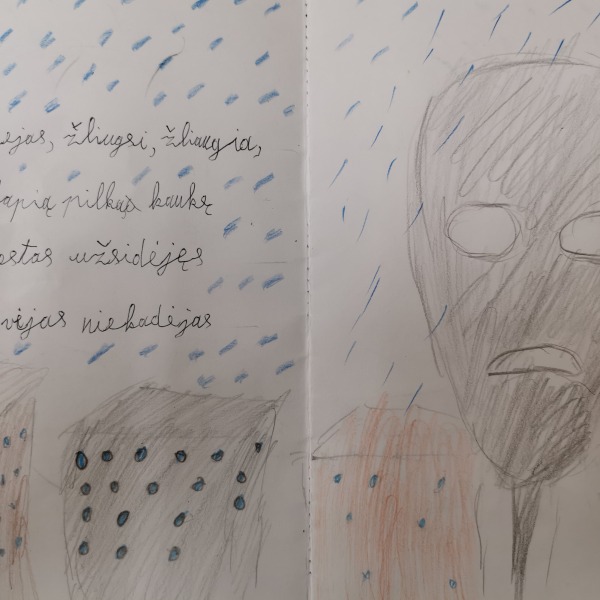 ejas, žliugsi, žliaugia,
lapią pilką kaukę
ostas užsidėjęs
vėjas niekadėjas